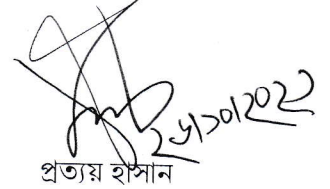 ২৬/১০/২০২২
প্রত্যয় হাসান